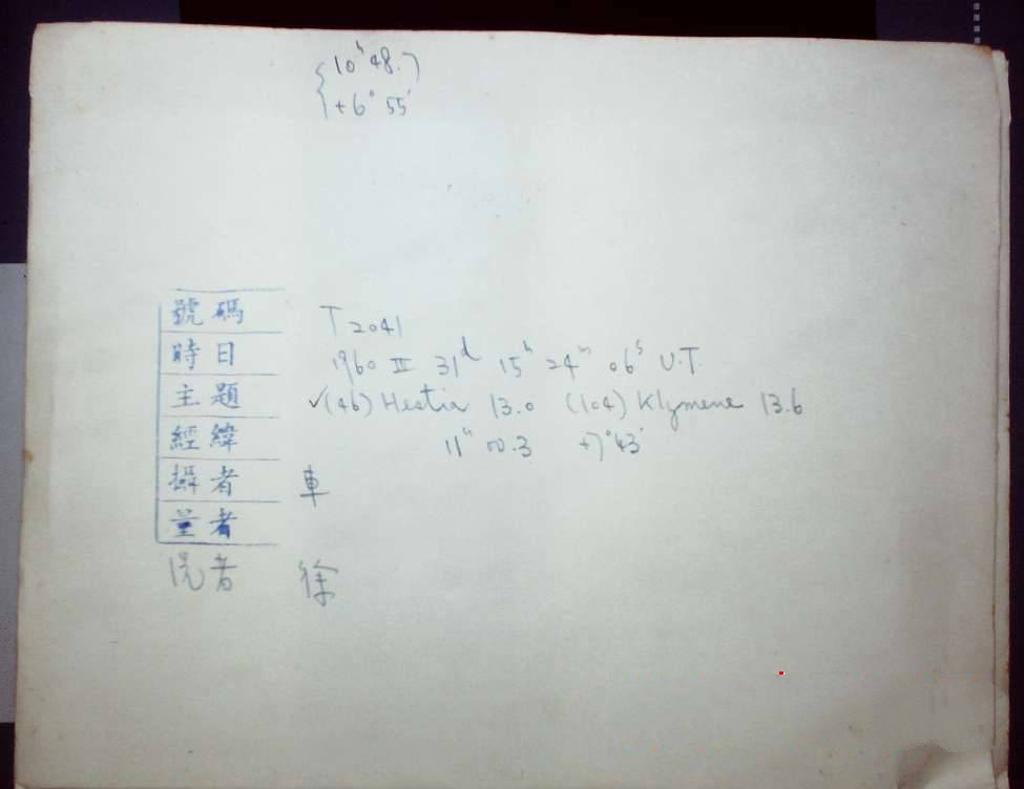 10ʰ 48.7
+6° 55'
號碼 T2041
時日 1960 II 31ᵈ 15ʰ 24ᵐ 06ˢ U.T.
主題 ✓(46) Hestia 13.0 (104) Klymene 13.6
經緯 11ʰ 00.3 +7°43'
攝者 車
量者
洗者 徐